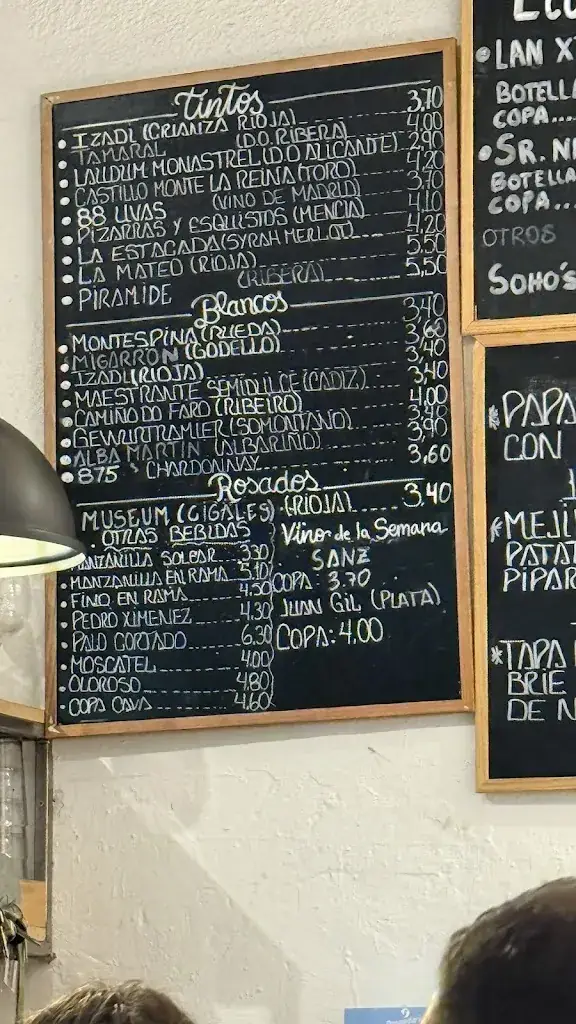 Tintos
IZADI (CRIANZA RIOJA) 3,70
TAMARAL (D.O. RIBERA) 4,00
LAUDUM MONASTREL (D.O ALICANTE) 2,90
CASTILLO MONTE LA REINA (TORO) 4,20
88 UVAS (VINO DE MADRID) 3,70
PIZARRAS Y ESQUISTOS (MENCIA) 4,10
LA ESTACADA (SYRAH MERLOT) 4,20
LA MATEO (RIOJA) 5,50
PIRAMIDE (RIBERA) 5,50
Blancos
MONTESPINA (RUEDA) 3,40
MIGARRON (GODELLO) 3,60
IZADI (RIOJA) 3,40
MAESTRANTE SEMIDULCE (CADIZ) 3,40
CAMIÑO DO FARO (RIBEIRO) 4,00
GEWURTRAMIER (SOMONTANO) 3,40
ALBA MARTIN (ALBARIÑO) 3,90
875 CHARDONNAY 3,60
Rosados
MUSEUM (CIGALES) (RIOJA) 3,40
OTRAS BEBIDAS
MANZANILLA SOLEAR 3,30
MANZANILLA EN RAMA 5,10
FINO EN RAMA 4,50
PEDRO XIMENEZ 4,30
PALO CORTADO 6,30
MOSCATEL 4,00
OLOROSO 4,80
COPA CAVA 4,60
Vino de la Semana
SANZ
COPA: 3,70
JUAN GIL (PLATA)
COPA: 4,00
LAN
BOTELL
COPA....
SR.
BOTELLA
COPA...
OTROS
SOHO'S
*PAPA
CON
*MEJI
PATA
PIPAR
*TAPA
BRIE
DE N